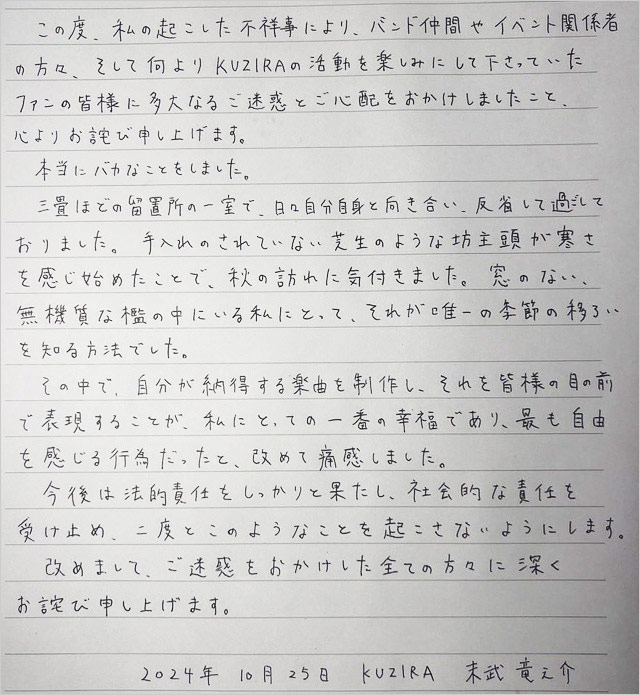 この度、私の起こした不祥事により、バンド仲間やイベント関係者
の方々、そして何よりKUZIRAの活動を楽しみにして下さっていた
ファンの皆様に多大なるご迷惑とご心配をおかけしましたこと、
心よりお詫び申し上げます。
本当にバカなことをしました。
三畳ほどの留置所の一室で、日々自分自身と向き合い、反省して過ごして
おりました。手入れのされていない芝生のような坊主頭が寒さ
を感じ始めたことで、秋の訪れに気付きました。窓のない、
無機質な檻の中にいる私にとって、それが唯一の季節の移ろい
を知る方法でした。
その中で、自分が納得する楽曲を制作し、それを皆様の目の前
で表現することが、私にとっての一番の幸福であり、最も自由
を感じる行為だったと、改めて痛感しました。
今後は法的責任をしっかりと果たし、社会的な責任を
受け止め、二度とこのようなことを起こさないようにします。
改めまして、ご迷惑をおかけした全ての方々に深く
お詫び申し上げます。
2024年 10月 25日 KUZIRA 末武 竜之介